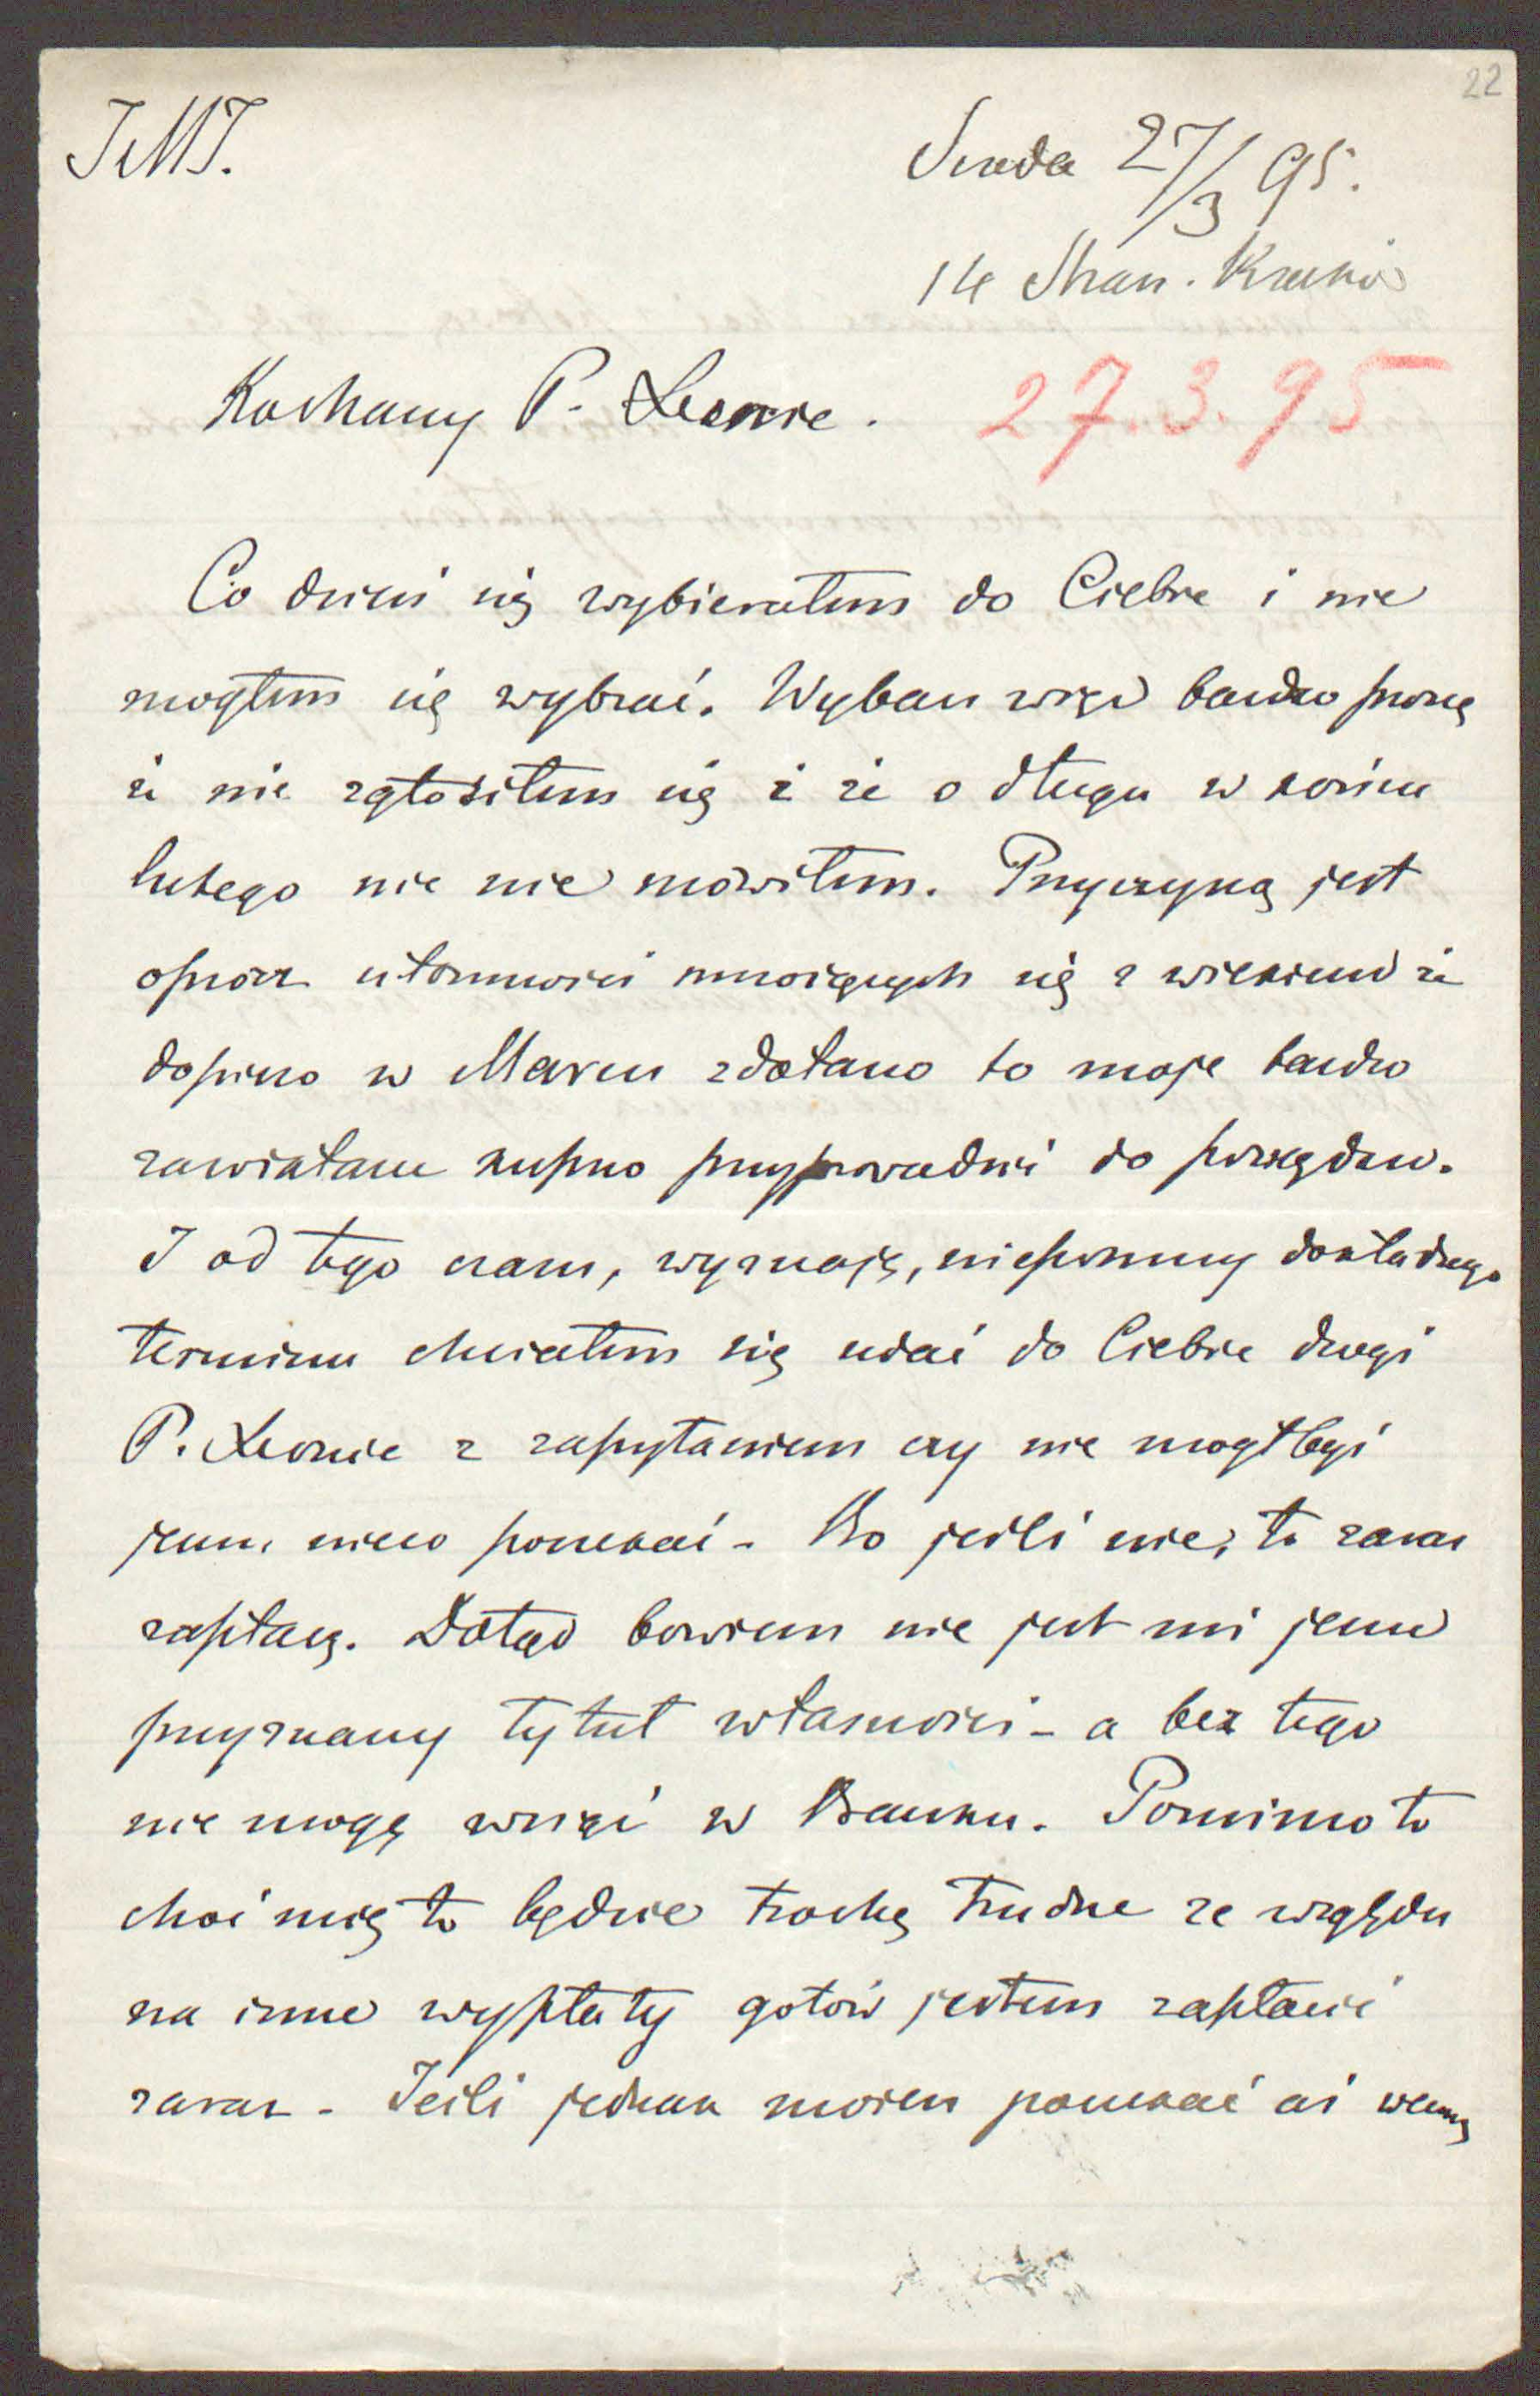 22
JMJ.
Środa 27/3 95.
14 Stran. Kraków
Kochany P. Leonie.
27.3.95
Co dzień się wybierałem do Ciebie i nie
mogłem się wybrać. Wybacz więc bardzo proszę
że nie zgłosiłem się i że o długu w końcu
lutego nic nie mówiłem. Przyczyną jest
oprócz ułomności mnożących się z wiekiem że
dopiero w Marcu zdołano to moje bardzo
zawiałane kupno przyprowadzić do porządku.
I od tego czasu, wyznaję, niepomny dokładnego
terminu chciałem się udać do Ciebie drogi
P. Leonie z zapytaniem czy nie mógłbyś
jeszcze nieco poczekać - Bo jeśli nie, to zaraz
zapłacę. Dotąd bowiem nie jest mi jeszcze
przyznany tytuł własności - a bez tego
nie mogę wziąć w Banku. Pomimo to
choć mię to będzie trochę trudne ze względu
na inne wypłaty gotów jestem zapłacić
zaraz - Jeśli jednak możesz poczekać aż wezmę